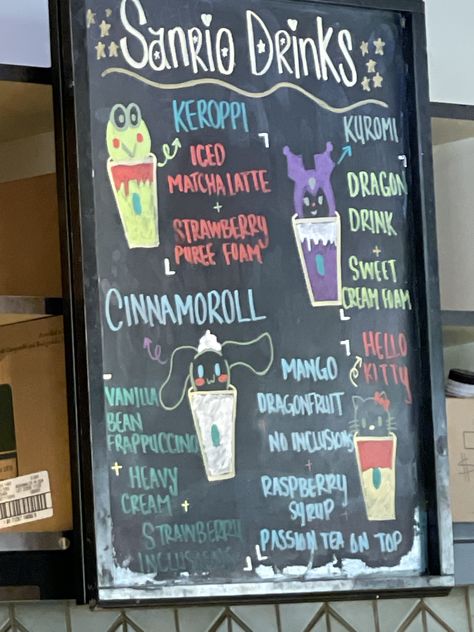 Sanrio Drinks
KEROPPI
ICED
MATCHA LATTE
+
STRAWBERRY
PUREE FOAM
KUROMI
DRAGON
DRINK
+
SWEET
CREAM FOAM
CINNAMOROLL
VANILLA
BEAN
FRAPPUCCINO
+
HEAVY
CREAM +
STRAWBERRY
INCLUSIONS
HELLO
KITTY
MANGO
DRAGONFRUIT
NO INCLUSIONS
+
RASPBERRY
SYRUP
PASSION TEA ON TOP